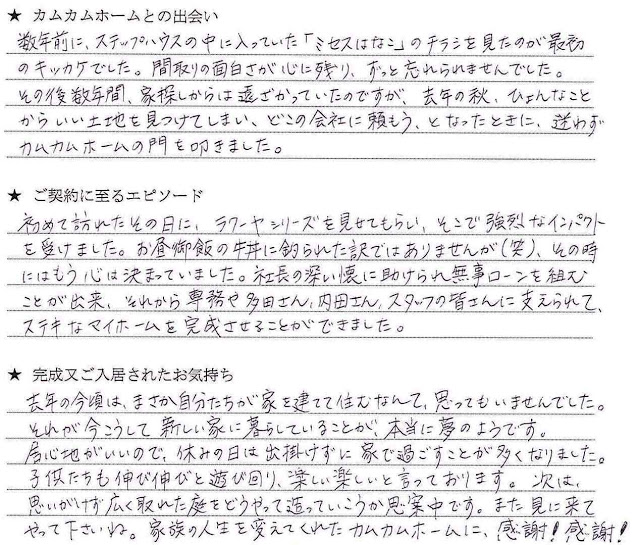 ★ カムカムホームとの出会い
数年前に、ステップハウスの中に入っていた「ミセスはなこ」のチラシを見たのが最初
のキッカケでした。間取りの面白さが心に残り、ずっと忘れられませんでした。
その後数年間、家探しからは遠ざかっていたのですが、去年の秋、ひょんなこと
からいい土地を見つけてしまい、どこの会社に頼もう、となったときに、迷わず
カムカムホームの門を叩きました。
★ ご契約に至るエピソード
初めて訪れたその日に、ラワーヤシリーズを見せてもらい、そこで強烈なインパクト
を受けました。お昼御飯の牛丼に釣られた訳ではありませんが(笑)、その時
にはもう心は決まっていました。社長の深い懐に助けられ無事ローンを組む
ことが出来、それから専務や多田さん、内田さん、スタッフの皆さんに支えられて、
ステキなマイホームを完成させることができました。
★ 完成又ご入居されたお気持ち
去年の今頃は、まさか自分たちが家を建てて住むなんて、思ってもいませんでした。
それが今こうして新しい家に暮らしていることが、本当に夢のようです。
居心地がいいので、休みの日は出掛けずに家で過ごすことが多くなりました。
子供たちも伸び伸びと遊び回り、楽しい楽しいと言っております。次は、
思いがけず広く取れた庭をどうやって造っていこうか思案中です。また見に来て
やって下さいね。家族の人生を変えてくれたカムカムホームに、感謝!感謝!